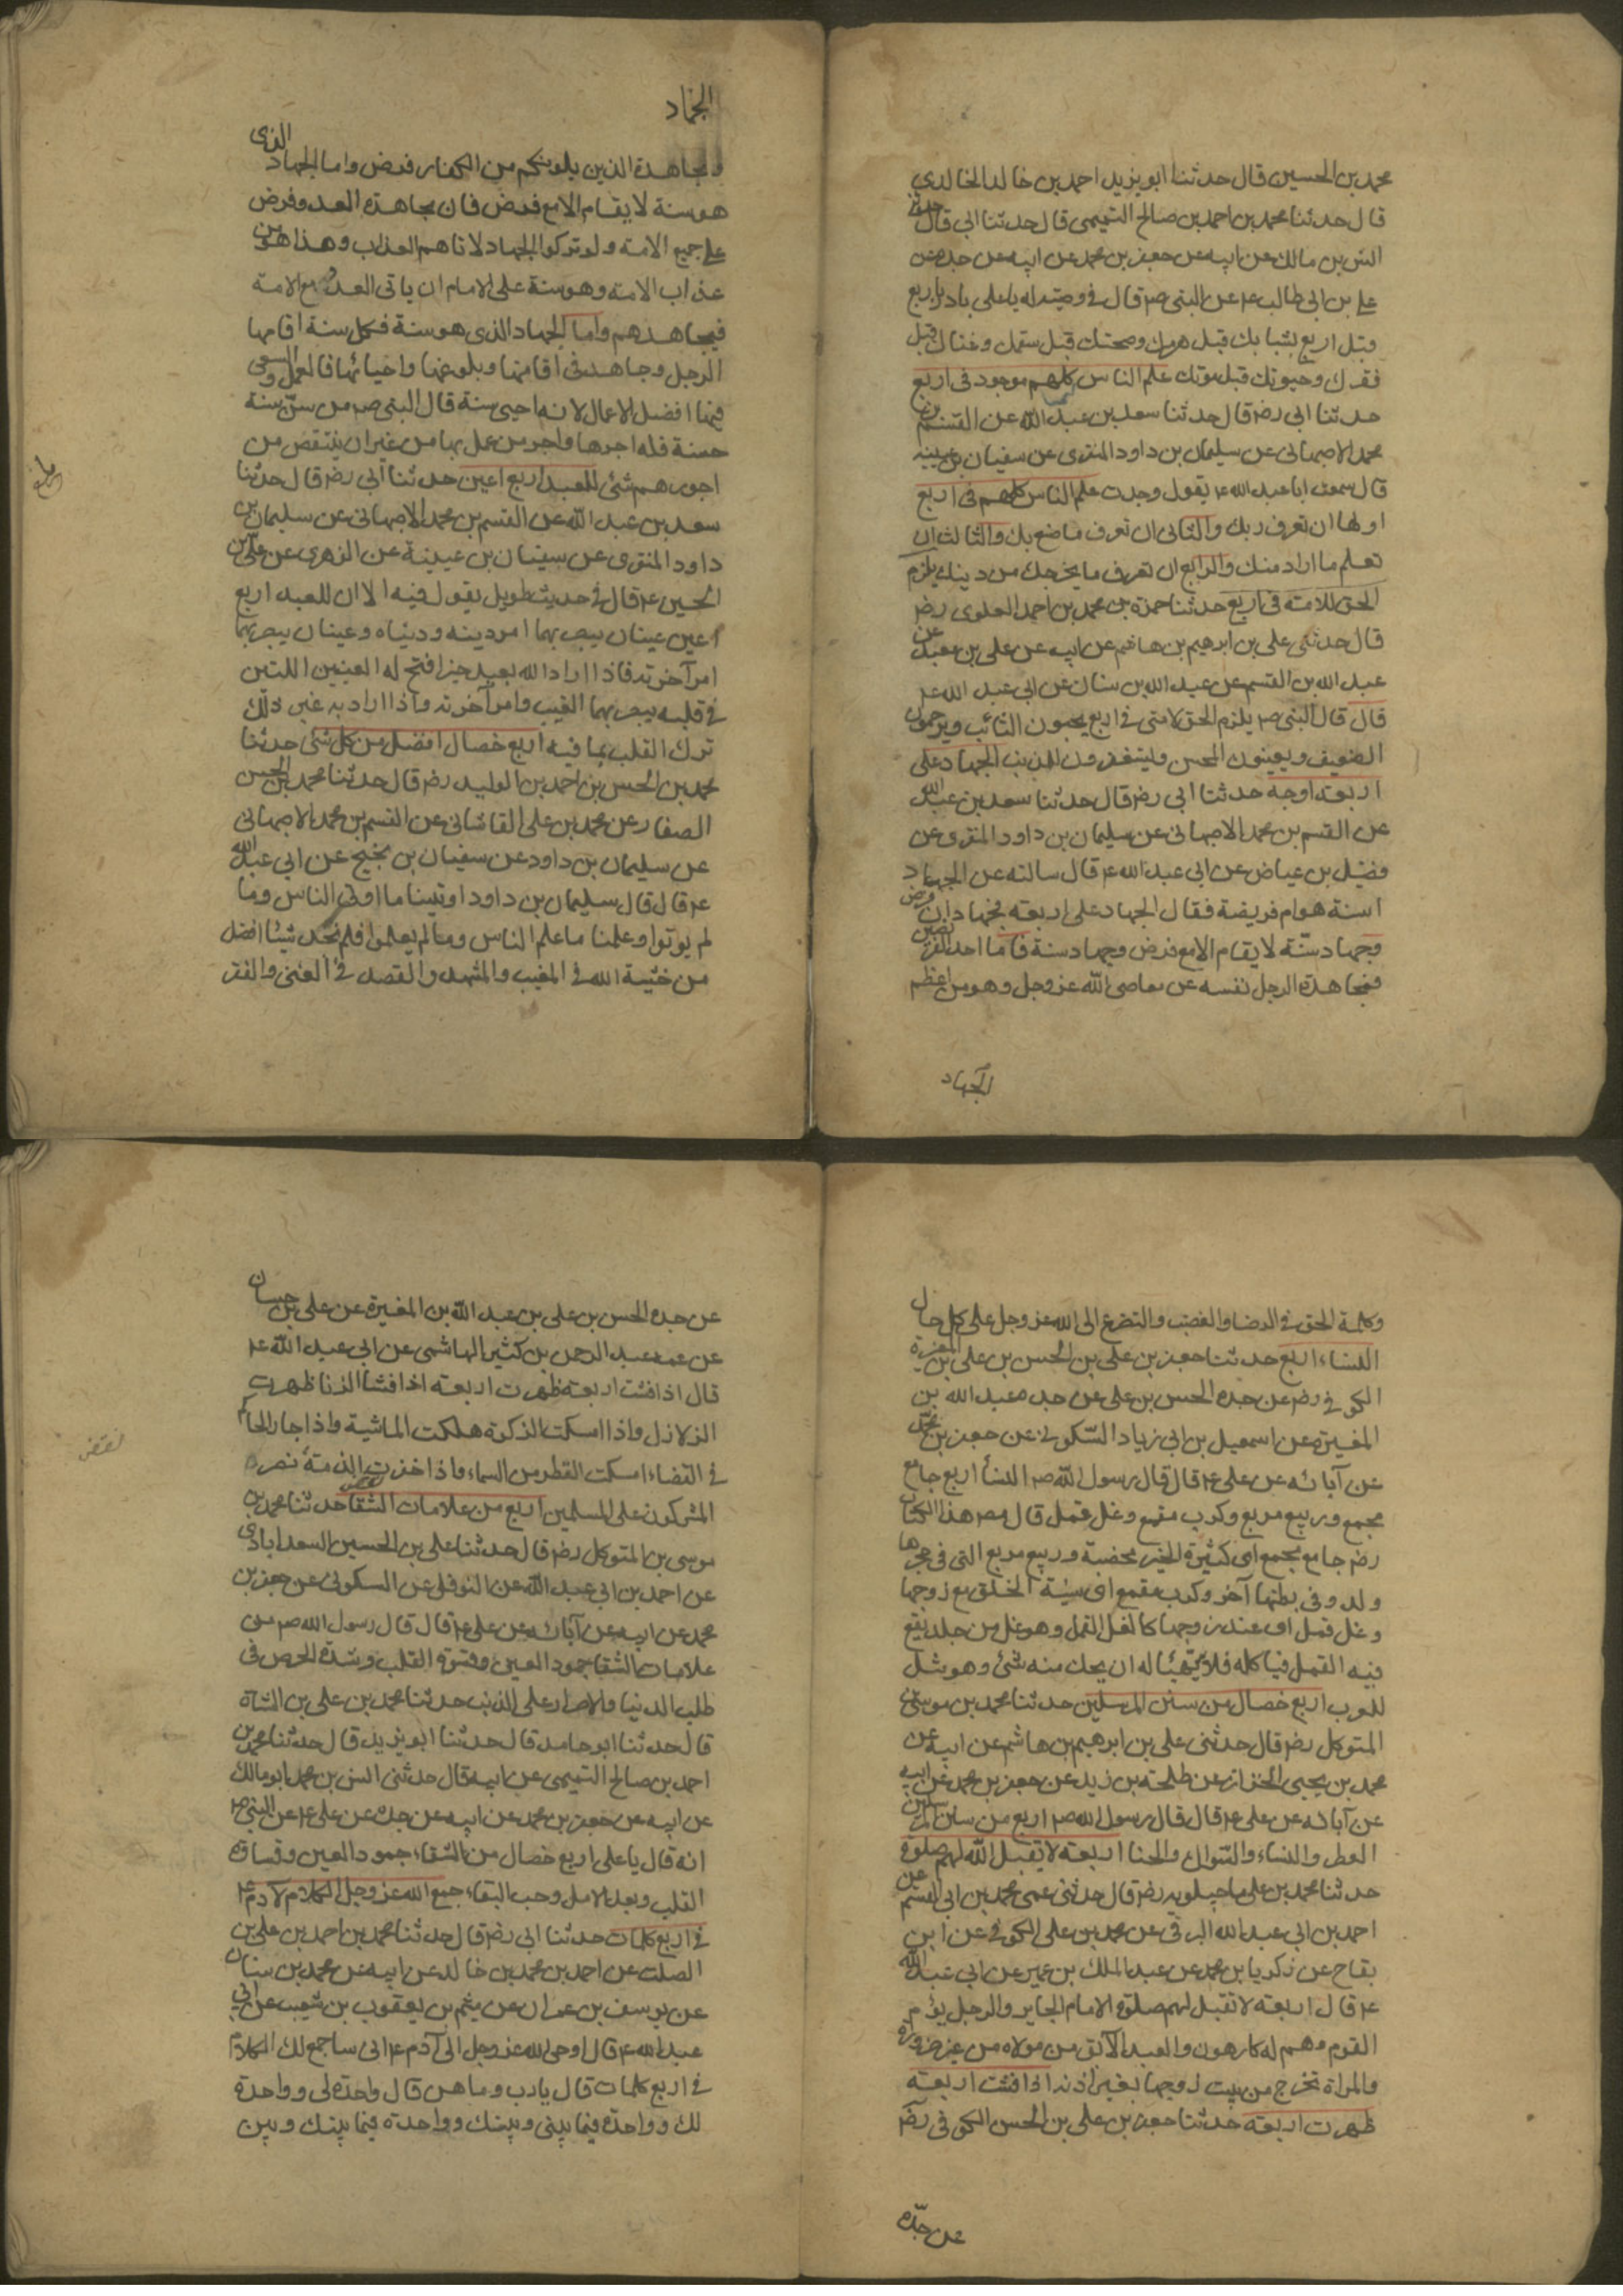 محمد بن الحسين قال حدثنا ابو يزيد احمد بن خالد الخالدي
قال حدثنا محمد بن احمد بن صالح التميمى قال حدثنا ابى قال حدثنا
انس بن مالك عن ابيه عن جعفر بن محمد عن ابيه عن جده عن
على بن ابى طالب ع عن النبى ص قال فى وصيته له يا على بادر باربع
قبل اربع بشبابك قبل هرمك وصحتك قبل سقمك وغناك قبل
فقرك وحيوتك قبل موتك علم الناس كلهم موجود فى اربع
حدثنا ابى رضه قال حدثنا سعد بن عبد الله عن القسم بن
محمد الاصبهانى عن سليمان بن داود المنقرى عن سفيان بن عيينه
قال سمعت ابا عبد الله ع يقول وجدت علم الناس كلهم فى اربع
اولها ان تعرف ربك والثانى ان تعرف ما صنع بك والثالث ان
تعلم ما اراد منك والرابع ان تعرف ما يخرجك من دينك يلزم
الحق للامة فى اربع حدثنا حمزة بن محمد بن احمد العلوى رضه
قال حدثنى على بن ابرهيم بن هاشم عن ابيه عن على بن معبد عن
عبد الله بن القسم عن عبد الله بن سنان عن ابى عبد الله ع
قال قال النبى ص يلزم الحق لامتى فى اربع يحبون التائب ويرحمون
الضعيف ويعينون المحسن وليتغفرون للمذنب الجهاد على
اربعة اوجه حدثنا ابى رضه قال حدثنا سعد بن عبد الله
عن القسم بن محمد الاصبهانى عن سليمان بن داود المنقرى عن
فضيل بن عياض عن ابى عبد الله ع قال سالته عن الجهاد
اسنة هو ام فريضة فقال الجهاد على اربعة فجهادان فرض
وجهاد سنّة لا يقام الا مع فرض وجهاد سنة فاما احد الفرضين
فمجاهدة الرجل نفسه عن معاصى الله عز وجل وهو من اعظم
الجهاد
الجهاد
ومجاهدة الذين يلونكم من الكفار فرض واما الجهاد الذى
هو سنة لا يقام الا مع فرض فان مجاهدة العدو فرض
على جميع الامة ولو تركوا الجهاد لاتاهم العذاب وهذا هو من
عذاب الامة وهو سنة على الامام ان ياتى العدو مع الامة
فيجاهدهم واما الجهاد الذى هو سنة فكل سنة اقامها
الرجل وجاهد فى اقامتها وبلوغها واحيائها فالعمل والسعى
فيها افضل الاعمال لانه احيى سنة قال النبى ص من سنّ سنة
حسنة فله اجرها واجر من عمل بها من غير ان ينتقص من
اجورهم شئ للعبد اربع اعين حدثنا ابى رضه قال حدثنا
سعد بن عبد الله عن القسم بن محمد الاصبهانى عن سليمان بن
داود المنقرى عن سفيان بن عيينة عن الزهرى عن على بن
الحسين ع قال فى حديث طويل يقول فيه الا ان للعبد اربع
اعين عينان يبصر بهما امر دينه ودنياه وعينان يبصر بهما
امر آخرته فاذا اراد الله بعبد خيرا فتح له العينين اللتين
فى قلبه يبصر بهما الغيب وامر آخرته واذا اراد به غير ذلك
ترك القلب بما فيه اربع خصال افضل من كل شئ حدثنا
محمد بن الحسن بن احمد بن الوليد رضه قال حدثنا محمد بن الحسن
الصفار عن محمد بن على القاشانى عن القسم بن محمد الاصبهانى
عن سليمان بن داود عن سفيان بن نجيح عن ابى عبد الله
ع قال قال سليمان بن داود اوتينا ما اوتى الناس وما
لم يوتوا وعلمنا ما علم الناس وما لم يعلموا فلم نجد شيئا افضل
من خشية الله فى المغيب والمشهد والقصد فى الغنى والفقر
وكلمة الحق فى الرضا والغضب والتضرع الى الله عز وجل على كل حال
النساء اربع حدثنا جعفر بن على بن الحسن بن على بن المغيرة
الكوفى رضه عن جده الحسن بن على عن جده عبد الله بن
المغيرة عن اسمعيل بن ابى زياد السّكونى عن جعفر بن محمّد
عن آبائه عن على ع قال قال رسول الله ص النسأ اربع جامع
مجمع وربيع مربع وكرب مقمع وغل قمل قال مصـ هذا الكتاب
رضه جامع مجمع اى كثيرة الخير مخصبة وربيع مربع التى فى حجرها
ولد وفى بطنها آخر وكرب مقمع اى سيئة الخلق مع زوجها
وغل قمل اى عند زوجها كالغل القمل وهو غل من جلد يقع
فيه القمل فياكله فلا يتهيّئا له ان يحك منه شئ وهو مثل
للعرب اربع خصال من سنن المرسلين حدثنا محمد بن موسى بن
المتوكل رضه قال حدثنى على بن ابرهيم بن هاشم عن ابيه عن
محمد بن يحيى الخزاز عن طلحة بن زيد عن جعفر بن محمد عن ابيه
عن آبائه عن على ع قال قال رسول الله ص اربع من سنن المرسلين
العطر والنساء والسّواك والحنا اربعة لا تقبل الله لهم صلوة
حدثنا محمد بن على ماجيلويه رضه قال حدثنى عمى محمد بن ابى القسم عن
احمد بن ابى عبد الله البرقى عن محمد بن على الكوفى عن ابن
بقاح عن زكريا بن محمد عن عبد الملك بن عمير عن ابى عبد الله
ع قال اربعة لا تقبل لهم صلوة الامام الجاير والرجل يؤم
القوم وهم له كارهون والعبد الآبق من مولاه من غير ضرورة
والمراة تخرج من بيت زوجها بغير اذنه اذا فشت اربعة
ظهرت اربعة حدثنا جعفر بن على بن الحسن الكوفى رضه
عن جدّه
عن جده الحسن بن على بن عبد الله بن المغيرة عن على بن حسان
عن عمه عبد الرحمن بن كثير الهاشمى عن ابى عبد الله ع
قال اذا فشت اربعة ظهرت اربعة اذا فشا الزنا ظهرت
الزلازل واذا امسكت الزكوة هلكت الماشية واذا جار الحاكم
فى القضاء امسكت القطر من السماء واذا خفرت الذمة نصر
المشركون على المسلمين اربع من علامات الشقا حدثنا محمد بن
موسى بن المتوكل رضه قال حدثنا على بن الحسين السعدابادى
عن احمد بن ابى عبد الله عن النوفلى عن السكونى عن جعفر بن
محمد عن ابيه عن آبائه عن على ع قال قال رسول الله ص من
علامات الشقا جمود العين وقسوة القلب وشدة الحرص فى
طلب الدنيا والاصرار على الذنب حدثنا محمد بن على بن الشاة
قال حدثنا ابو حامد قال حدثنا ابو يزيد قال حدثنا محمد بن
احمد بن صالح التميمى عن ابيه قال حدثنى انس بن محمد ابو مالك
عن ابيه عن جعفر بن محمد عن ابيه عن جده عن على ع عن النبى ص
انه قال يا على اربع خصال من الشقاء جمود العين وقساوة
القلب وبعد الامل وحب البقاء جمع الله عز وجل الكلام لآدم ع
فى اربع كلمات حدثنا ابى رضه قال حدثنا محمد بن احمد بن على بن
الصلت عن احمد بن محمد بن خالد عن ابيه عن محمد بن سنان
عن يوسف بن عمران عن ميثم بن يعقوب بن شعيب عن ابى
عبد الله ع قال اوحى الله عز وجل الى آدم ع انى ساجمع لك الكلام
فى اربع كلمات قال يا رب وما هن قال واحدة لى وواحدة
لك وواحدة فيما بينى وبينك وواحدة فيما بينك وبين